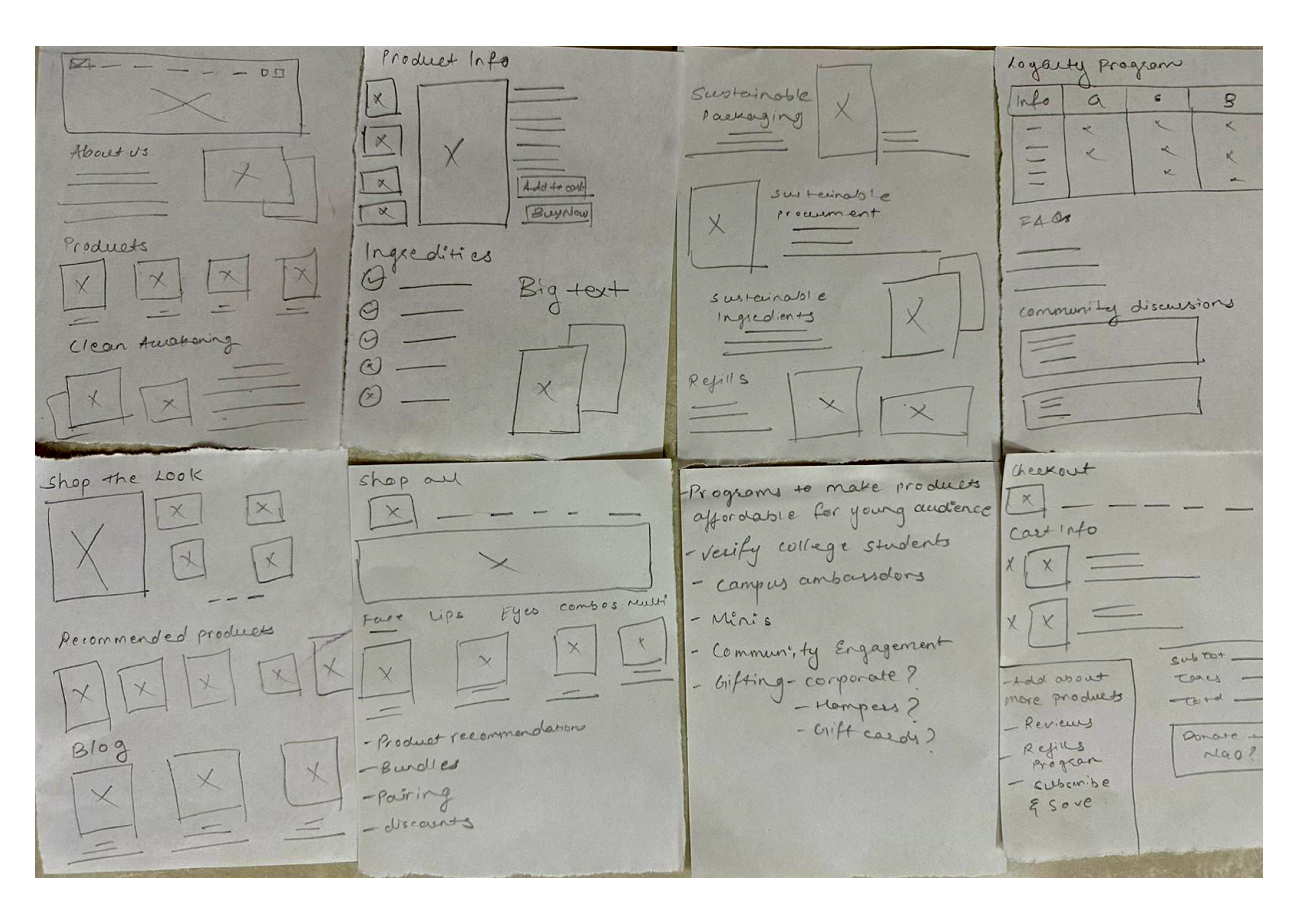 About us
Products
Clean Awakening
Product Info
Add to cart
Buy Now
Ingredities
Big text
Sustainable
Packaging
Sustainable
procument
Sustainable
Ingredients
Refills
Loyalty program
Info
a
s
B
FAQs
Community discussions
Shop the Look
Recommended products
Blog
Shop all
Face Lips Eyes combos Multi
- Product recommendation
- Bundles
- Pairing
- discounts
- Programs to make products
affordable for young audience
- Verify college students
- Campus ambassdors
- Minis
- Community Engagement
- Gifting - corporate?
- Hampers?
- Gift cards?
Checkout
Cart Info
- Add about
more products
- Reviews
- Refills
Program
- Subscribe
& Save
Subtot
Taxes
Donate
NGO?